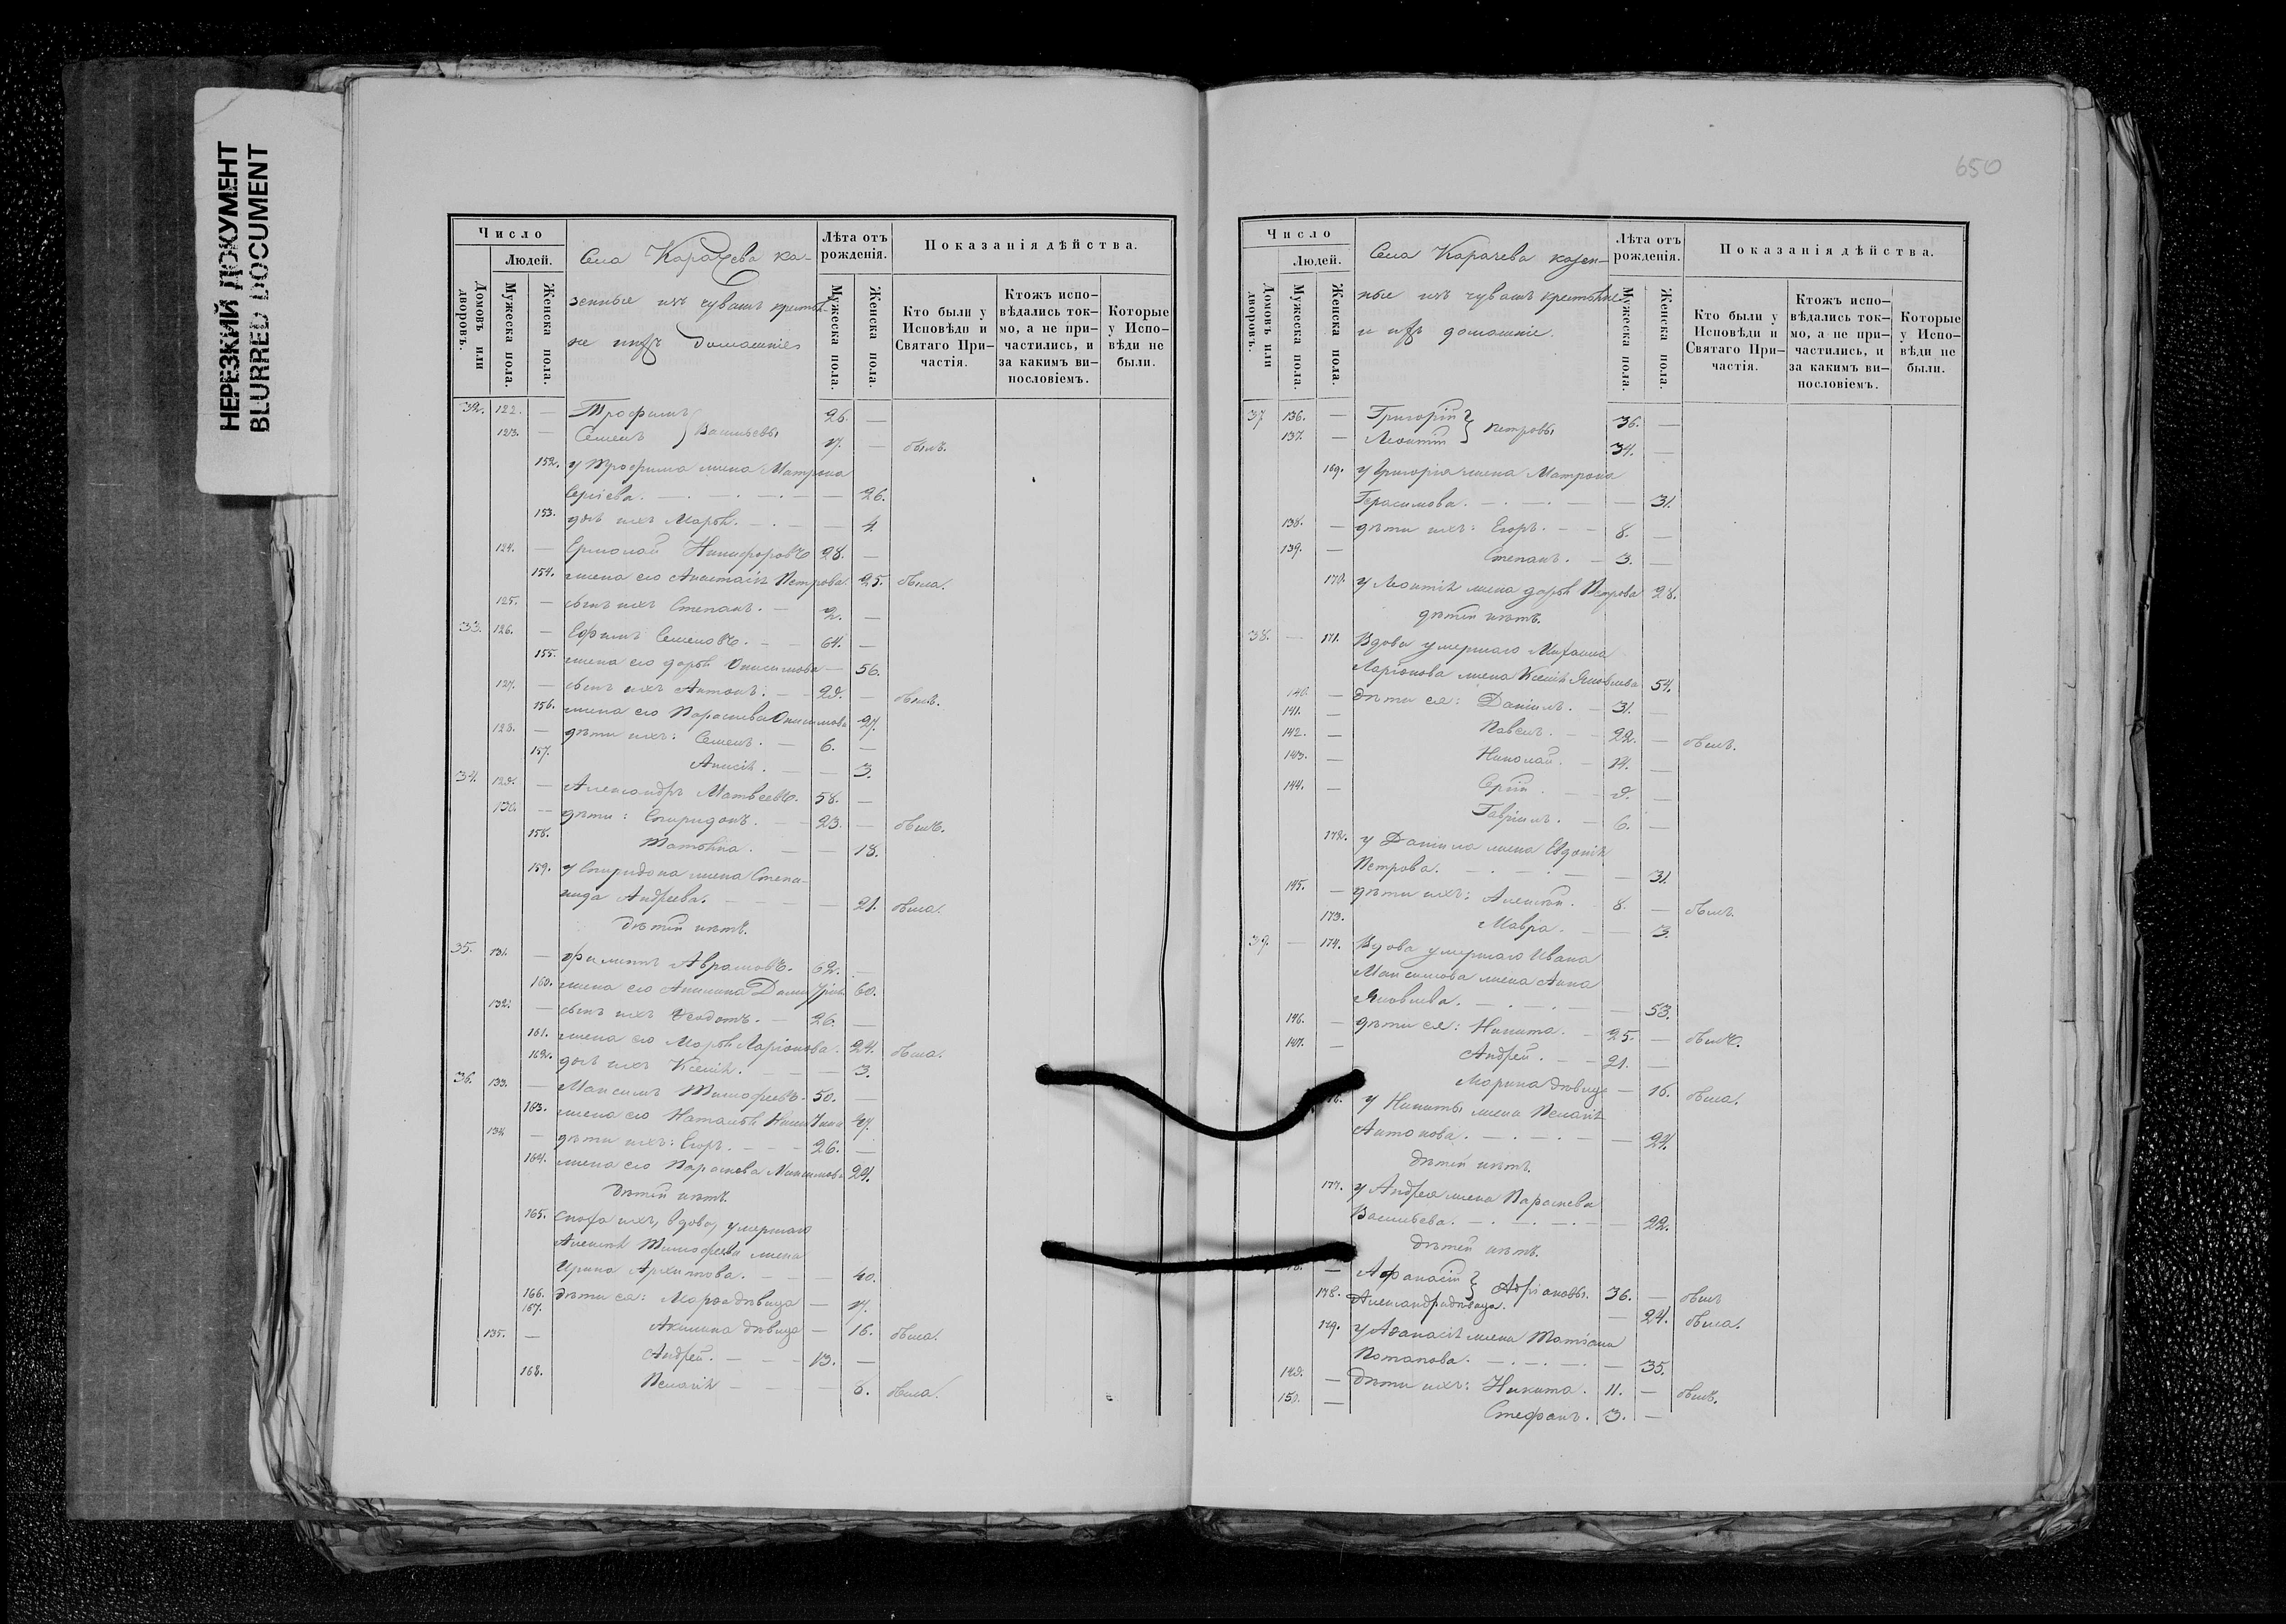 НЕРЕЗКИЙ ДОКУМЕНТ
BLURRED DOCUMENT
Число
Людей.
Домовъ или дворовъ.
Мужеска пола.
Женска пола.
Села Карачева ка-
зенные изъ чувашъ крестья
не и ихъ домашніе
Лѣта отъ рожденія.
Мужеска пола.
Женска пола.
Показанія дѣйства.
Кто были у Исповѣди и Святаго При-частія.
Ктожъ испо-вѣдались ток-мо, а не при-частились, и за какимъ ви-нословіемъ.
Которые у Испо-вѣди не были.
32. 122. — Трофимъ } 26. —
123. — Семенъ } Васильевы 17. — былъ.
152. у Трофима жена Матрона
Сергіева. — 26.
153. дочь ихъ Марья. — 4.
124. — Ермолай Никифоровъ 28. —
154. жена его Анастасія Петрова. 25. была.
125. — сынъ ихъ Степанъ. — 2. —
33. 126. — Ефимъ Семеновъ. — 64. —
155. жена его Дарья Онисимова — 56.
127. — сынъ ихъ Антонъ. — 29. — былъ.
156. жена его Параскева Онисимова 27.
128. — дѣти ихъ: Семенъ. — 6. —
157. Анисія. — 3.
34. 129. — Александръ Матвѣевъ. 58. —
130. — дѣти: Спиридонъ. — 23. — былъ.
158. Татьяна. — 18.
159. у Спиридона жена Степа-
нида Андреева. — 21. была.
Дѣтей нѣтъ.
35. 131. — Филиппъ Аврамовъ. 62. —
160. жена его Акилина 60.
132. — сынъ ихъ Ѳеодотъ. — 26. —
161. жена его Марья Ларіонова. 24. была.
162. дочь ихъ Ксенія. — 3.
36. 133. — Максимъ Тимофеевъ. 50. —
163. жена его Наталья 47.
134. — дѣти ихъ: Егоръ. — 26. —
164. жена его Параскева Максимова 24.
Дѣтей нѣтъ.
165. Сноха ихъ, вдова, умершаго
Алексѣя Тимофеева жена
Ирина Архипова. — 40.
166. дѣти ея: Марѳа дѣвица — 17.
167. Акилина дѣвица — 16. была.
135. — Андрей. — 13. —
168. Пелагія — 8. была.
650
Число
Людей.
Домовъ или дворовъ.
Мужеска пола.
Женска пола.
Села Карачева казен-
ные изъ чувашъ крестьяне
и ихъ домашніе.
Лѣта отъ рожденія.
Мужеска пола.
Женска пола.
Показанія дѣйства.
Кто были у Исповѣди и Святаго При-частія.
Ктожъ испо-вѣдались ток-мо, а не при-частились, и за какимъ ви-нословіемъ.
Которые у Испо-вѣди не были.
37 136. — Григорій } 36. —
137. — Леонтій } Петровы 34. —
169. у Григорія жена Матрона
Герасимова. — 31.
138. — дѣти ихъ: Егоръ. — 8. —
139. — Степанъ. — 3. —
170. у Леонтія жена Дарья Петрова 28.
дѣтей нѣтъ.
38. — 171. Вдова умершаго Михаила
Ларіонова жена Ксенія Яковлева 54.
140. — Дѣти ея: Даніилъ. — 31. —
141. — Павелъ. — 22. — былъ.
142. — Николай. — 14. —
143. — Сергій. — 9. —
144. — Гавріилъ. — 6. —
172. у Даніила жена Евдокія
Петрова. — 31.
145. — дѣти ихъ: Алексѣй. — 8. — былъ.
173. Мавра. — 3.
39. — 174. Вдова умершаго Ивана
Максимова жена Анна
Яковлева. — 53.
146. — дѣти ея: Никита. — 25. — былъ.
147. — Андрей. — 21.
Марина дѣвица — 16. была.
у Никиты жена Пелагія
Антонова. — 24.
Дѣтей нѣтъ.
177. у Андрея жена Параскева
Васильева. — 22.
Дѣтей нѣтъ.
— Афанасій } Адріановы. 36. — былъ
178. Александра дѣвица. — 24. была.
179. у Аѳанасія жена Татіана
Потапова. — 35.
149. — Дѣти ихъ: Никита. 11. — былъ.
150. — Стефанъ. 3. —